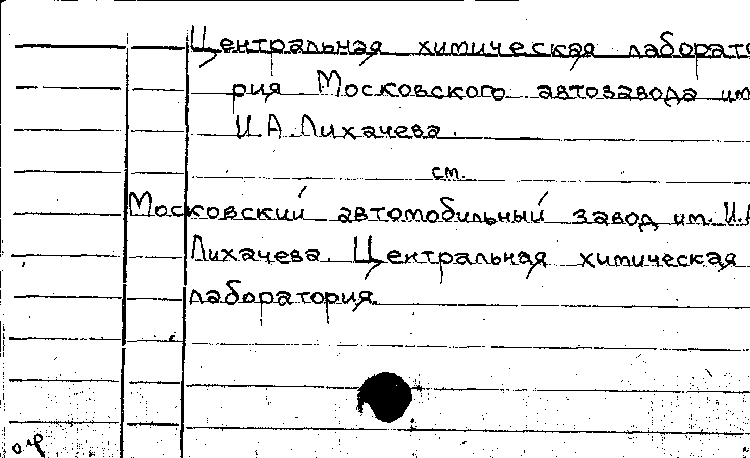 Центральная химическая лаборато
рия Московского автозавода им
И.А. Лихачева.
см.
Московский автомобильный завод им. И.А
Лихачева. Центральная химическая
лаборатория